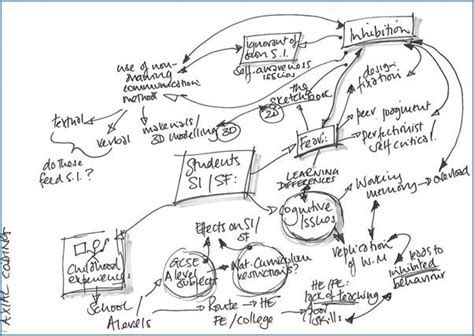 Inhibition
Ignorant of
own S.I.
self-awareness
issues
use of non-
drawing
communication
methods
design
fixation
the
sketchbook
2D
textual
verbal
materials/
3D modelling
3D
Fear:
peer judgment
perfectionist
self critical.
do these
feed S.I.?
Students
SI/SF:
LEARNING
DIFFERENCES
Cognitive
Issues
Working
memory
overload
replication
of W.M
leads to
inhibited
behaviour
Effects on SI/
SF
Childhood
experience
GCSE
A level
subjects
Nat. Curriculum
restrictions?
School/
A levels
Route → HE
FE/college
HE/FE:
lack of teaching
skills
AXIAL CODING